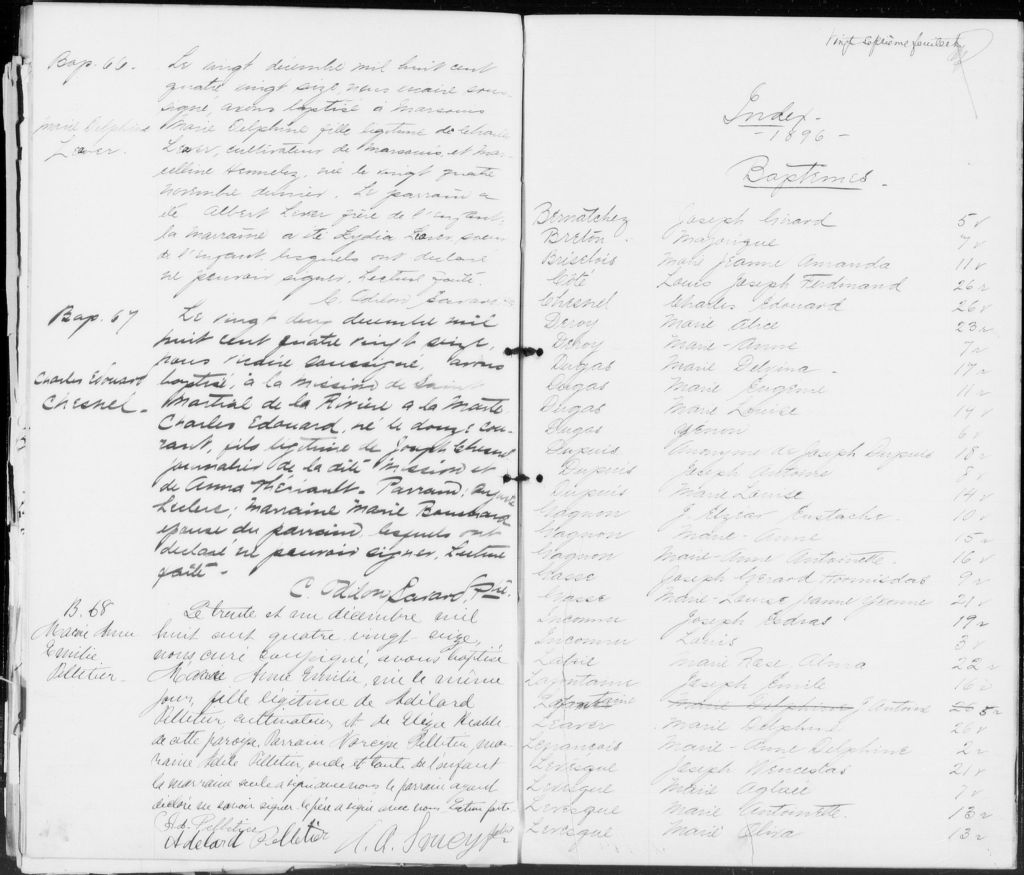 Bap. 66.
Marie Delphine
Leaver.
Le vingt decembre mil huit cent
quatre vingt seize, nous vicaire sous-
signé, avons baptisé à Marsouis
Marie Delphine fille legitime de
Leaver, cultivateur de Marsouis, et Mar-
celline Henneley, née le vingt quatre
novembre dernier. Le parrain a
été Albert Lever frère de l'enfant,
la marraine a été Lydia Leaver, soeur
de l'enfant lesquels ont declaré
ne pouvoir signer. Lecture faite.
C. Odilon Savard
Bap. 67
Charles Edouard
Chesnel.
Le vingt deux decembre mil
huit cent quatre vingt seize,
nous vicaire soussigné, avons
baptisé, à la mission de Saint
Martial de la Rivière a la Marte
Charles Edouard, né le douze cou-
rant, fils legitime de Joseph Chesnel
journalier de la dite mission et
de Anna Thériault. Parrain; August
Leclerc; Marraine Marie
epouse du parrain, lesquels ont
declaré ne pouvoir signer. Lecture
faite.
C. Odilon Savard Ptre.
B. 68
Marie Anna
Emilie
Pelletier.
Le trente et un décembre mil
huit cent quatre vingt seize,
nous curé soussigné, avons baptisé
Marie Anna Emilie, née le même
jour, fille légitime de Adélard
Pelletier cultivateur, et de
de cette paroisse. Parrain Narcisse Pelletier, mar-
raine Adèle Pelletier, oncle et tante de l'enfant
la marraine seule a signé avec nous le parrain ayant
déclaré ne savoir signer. le père a signé avec nous. Lecture faite
Ad. Pelletier
Adelard Pelletier
vingt septième feuillet
Index.
- 1896 -
Baptemes.
Bernatchez Joseph Girard 5 v
Breton Majorique 7 v
Brisebois Marie Jeanne Amanda 11 v
Côté Louis Joseph Ferdinand 26 r
Chesnel Charles Edouard 26 v
Deroy Marie Alice 23 r
Deroy Marie-Anne 7 r
Dugas Marie Delvina 17 r
Dugas Marie Eugénie 11 r
Dugas Marie Louise 14 v
Dugas 6 v
Dupuis Anonyme de Joseph Dupuis 18 r
Dupuis Joseph Antoine 8 v
Dupuis Marie Louise 14 v
Gagnon J. Elzéar Eustache 10 v
Gagnon Marie-Anne 15 r
Gagnon Marie-Anne Antoinette 16 v
Gasse Joseph Gérard Hormisdas 9 r
Gasse Marie-Louise Jeanne Yvonne 21 v
Inconnu Joseph Esdras 19 r
Inconnu Louis 3 v
Marie Rose Alma 22 r
Lafontaine Joseph Emile 16 r
Lafontaine Marie Delphine J. Antoine 26 5 r
Leaver Marie Delphine 26 v
Lefrançois Marie-Anne Delphine 2 r
Levesque Joseph Wenceslas 21 v
Levesque Marie Aglaée 7 v
Levesque Marie Antoinette 13 r
Levesque Marie Oliva 13 r